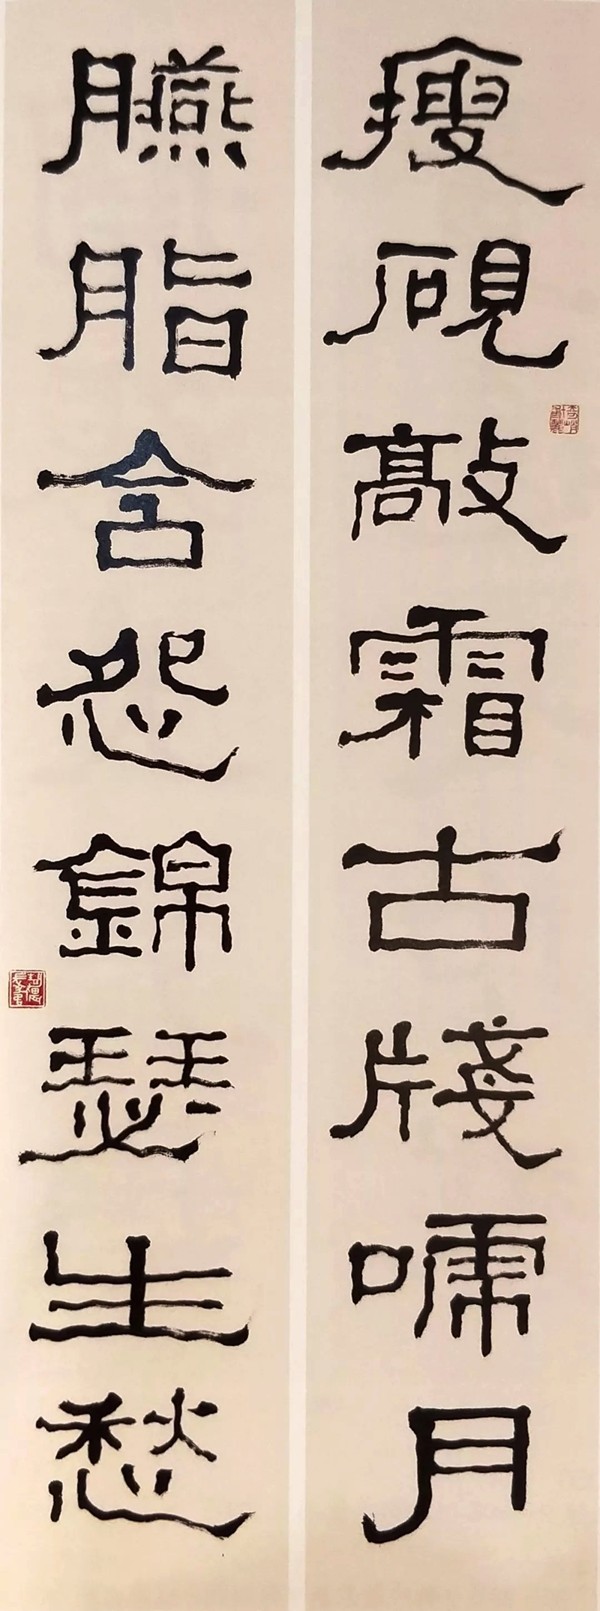 瘦硯敲霜古牋啼月
臙脂含怨錦瑟生愁